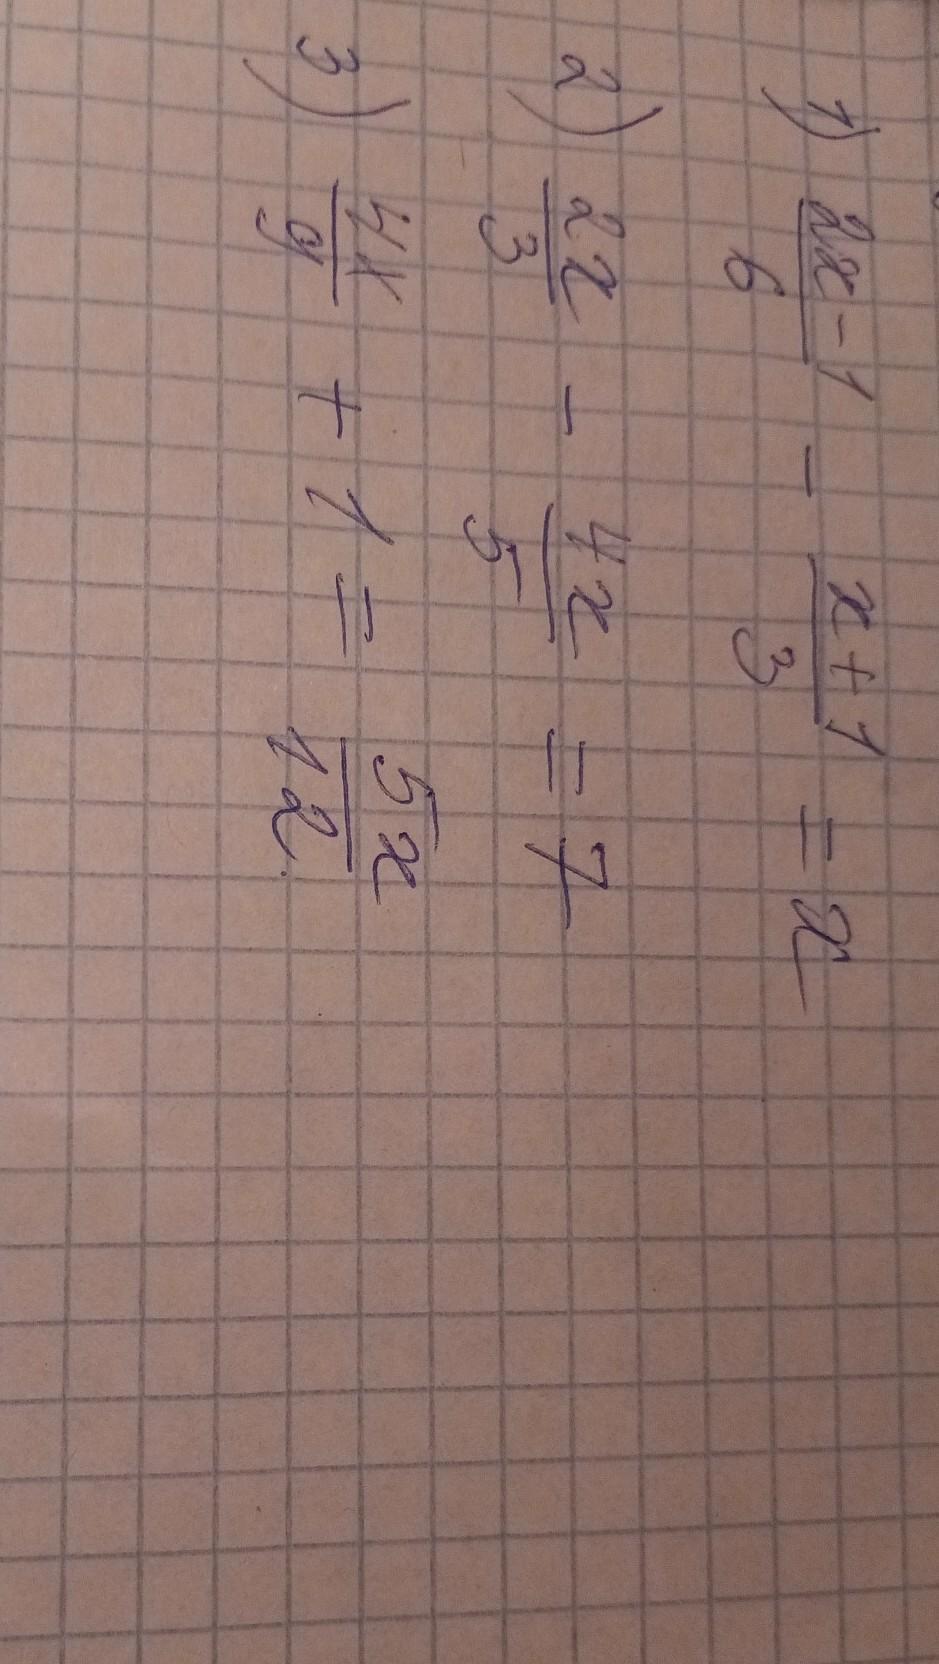 1) (2x-1)/6 - (x+1)/3 = x
2) 2x/3 - 4x/5 = 7
3) 4x/9 + 1 = 5x/12